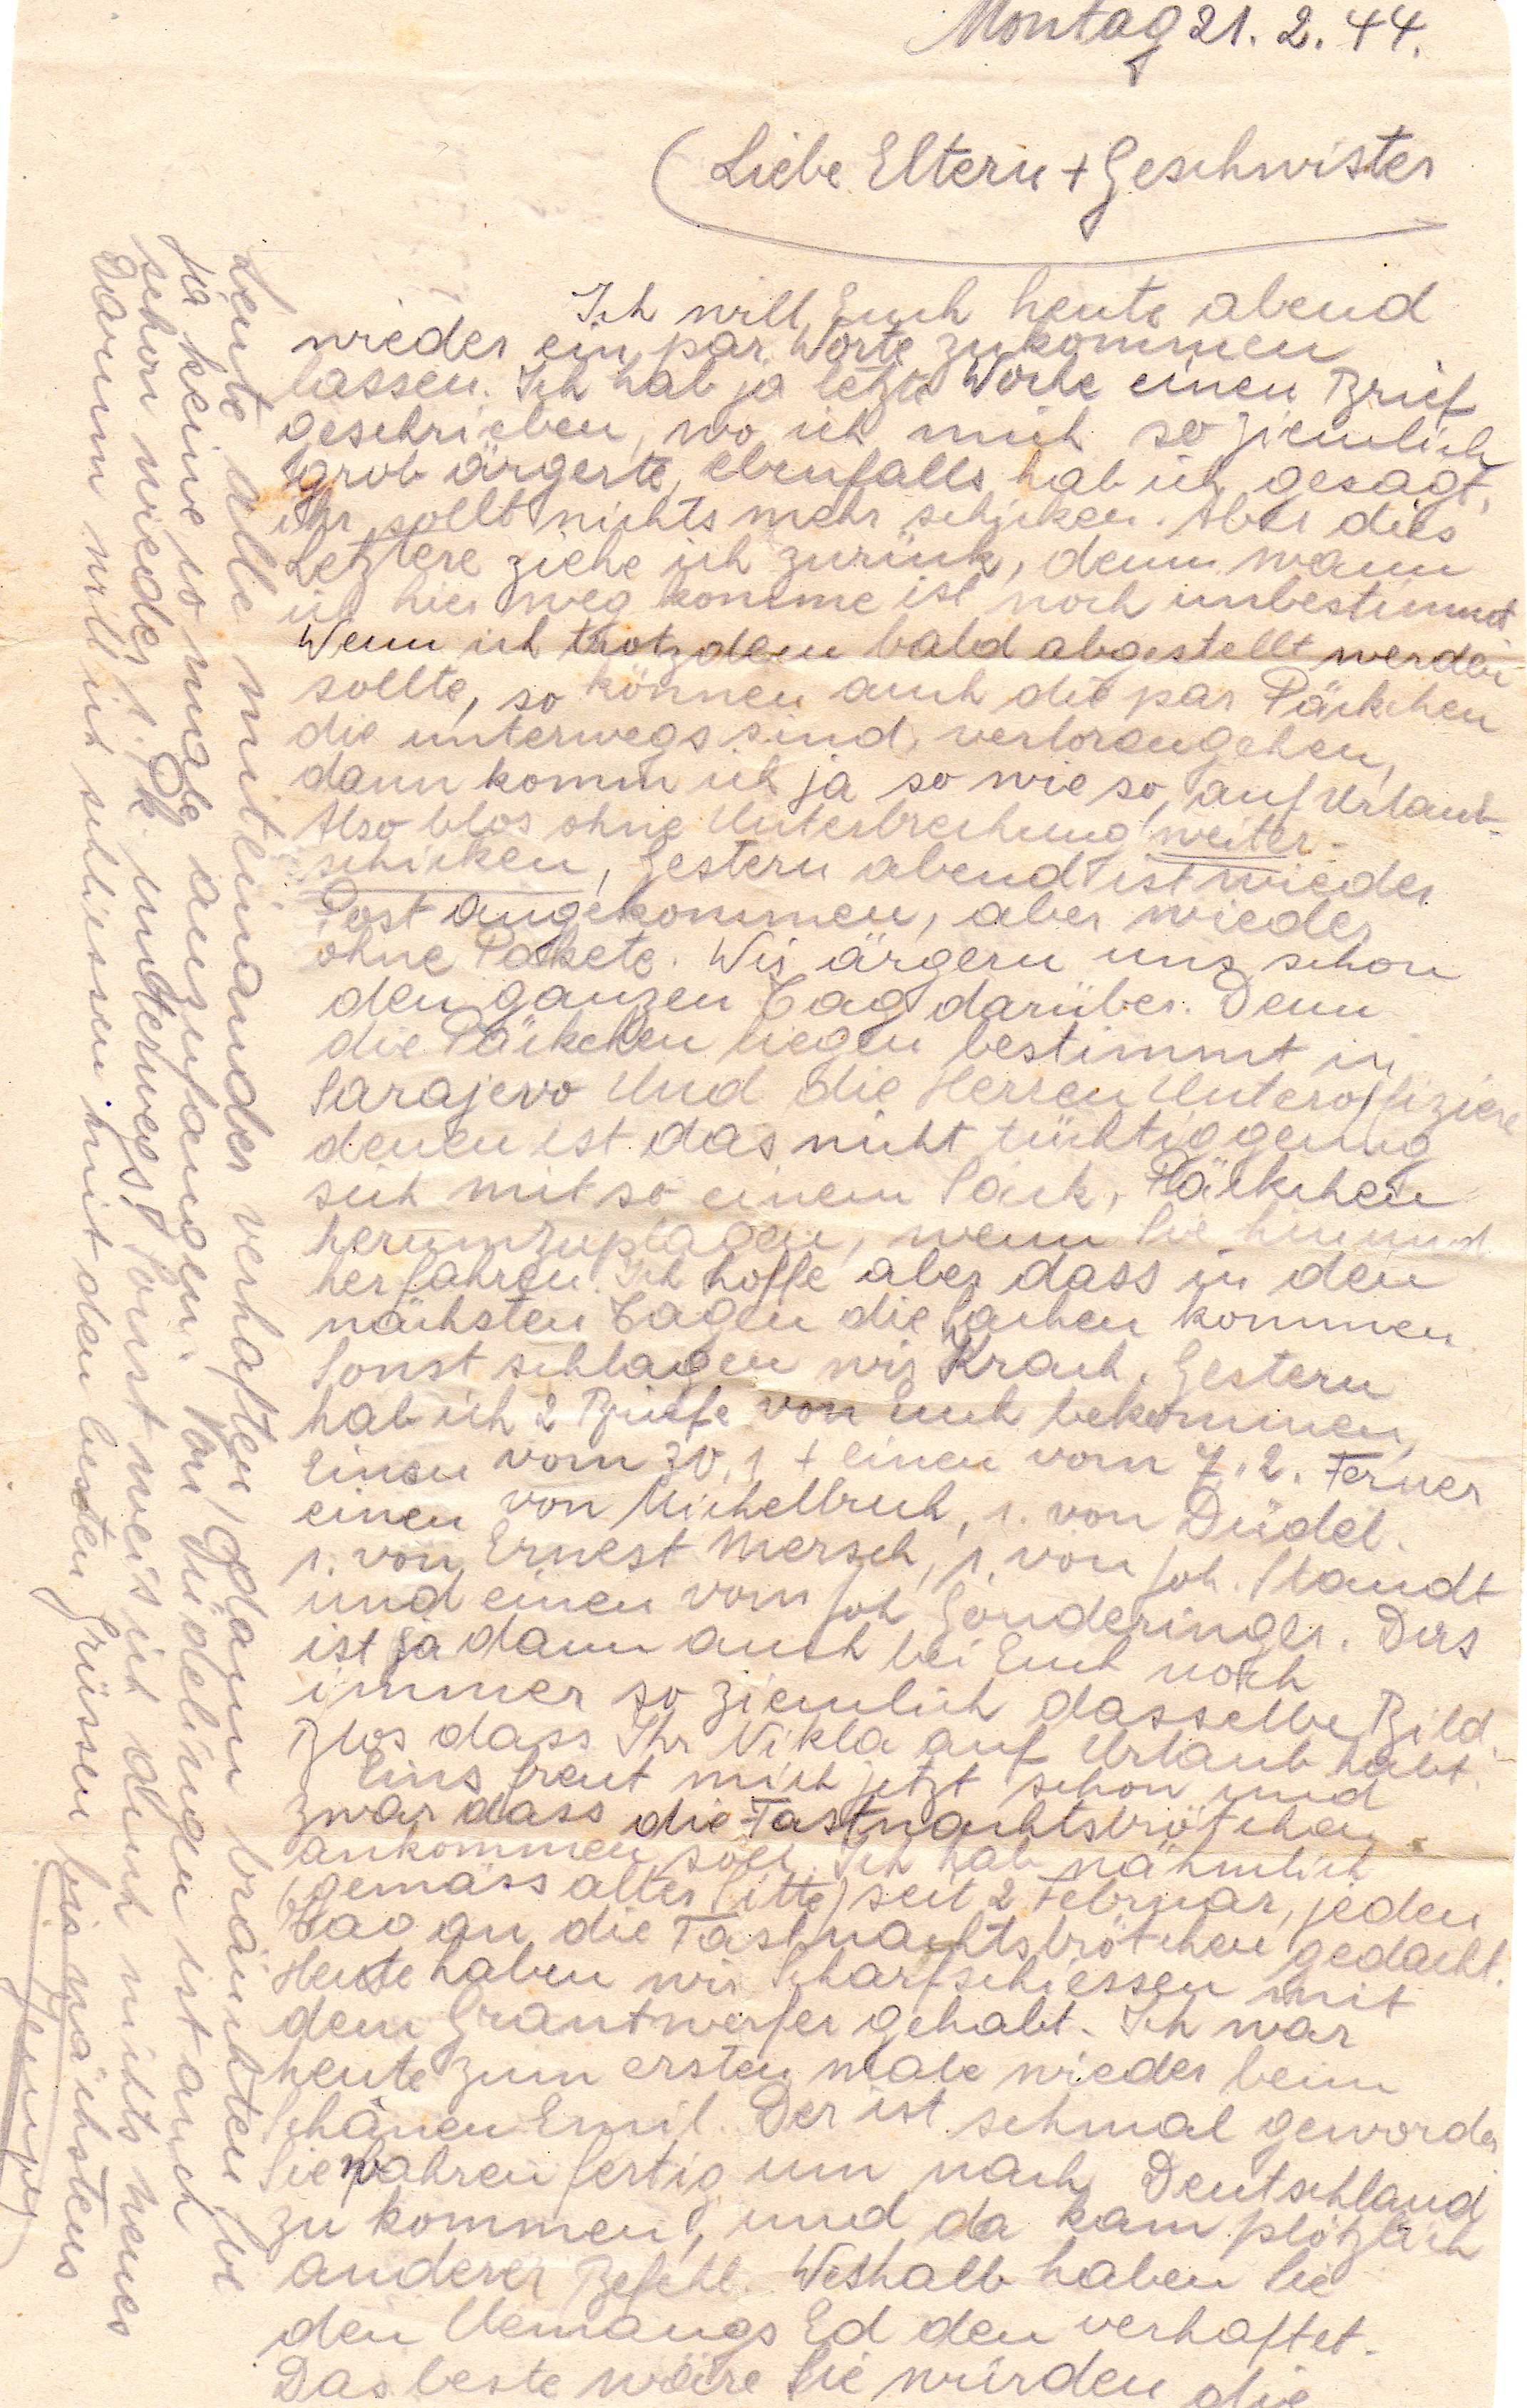 Montag 21. 2. 44.
Liebe Eltern + Geschwister
Ich will Euch heute abend
wieder ein par Worte zukommen
lassen. Ich hab ja letzte Woche einen Brief
geschrieben, wo ich mich so ziemlich
grob ärgerte, ebenfalls hab ich gesagt,
ihr sollt nichts mehr schicken. Aber dies
Letztere ziehe ich zurück, denn wann
ich hier weg komme ist noch unbestimmt
Wenn ich trotzdem bald abgestellt werden
sollte, so können auch die par Päckchen
die unterwegs sind, verlorengehen,
dann komm ich ja so wie so, auf Urlaub.
Also blos ohne Unterbrechung weiter-
schicken, Gestern abend ist wieder
Post angekommen, aber wieder
ohne Pakete. Wir ärgern uns schon
den ganzen Tag darüber. Denn
die Päckchen liegen bestimmt in
Sarajevo Und die Herren Unteroffiziere
denen ist das nicht tüchtig genug
sich mit so einem Sack, Päckchen
herumzuplagen, wenn Sie hin und
her fahren. Ich hoffe aber dass in den
nächsten Tagen die Sachen kommen
Sonst schlagen wir Krach. Gestern
hab ich 2 Briefe von Euch bekommen,
Einen vom 30.1 + einen vom 7.2. Ferner
einen von Michelbruch, 1. von Düdel.
1. von Ernest Mersch, 1. von Joh. Staudt
und einen vom Joh Gonderinger. Das
ist ja dann auch bei Euch noch
immer so ziemlich dasselbe Bild.
Blos dass Ihr Nikla auf Urlaub habt.
Eins freut mich jetzt schon und
zwar dass die Fastnachtsbrötchen
ankommen soll. Ich hab nähmlich
(gemäss alter Sitte) seit 2 Februar, jeden
Tag an die Fastnachtsbrötchen gedacht.
Heute haben wir Scharfschiessen mit
dem Grantwerfer gehabt. Ich war
heute zum ersten male wieder beim
Schänen Emil. Der ist schmal geworden
Sie wahren fertig um nach Deutschland
zu kommen, und da kam plötzlich
anderer Befehl. Weshalb haben Sie
den Ed den verhaftet.
Das beste wäre Sie würden die
Leute alle miteinander verhaften, dann bräuchten Sie
ja keine so male anzufangen. Von Düdelingen ist auch
schon wieder 1. Pk. unterwegs. Sonst weis ich auch nichts neues
Darum will ich schliessen mit den besten Grüssen bis nächstens